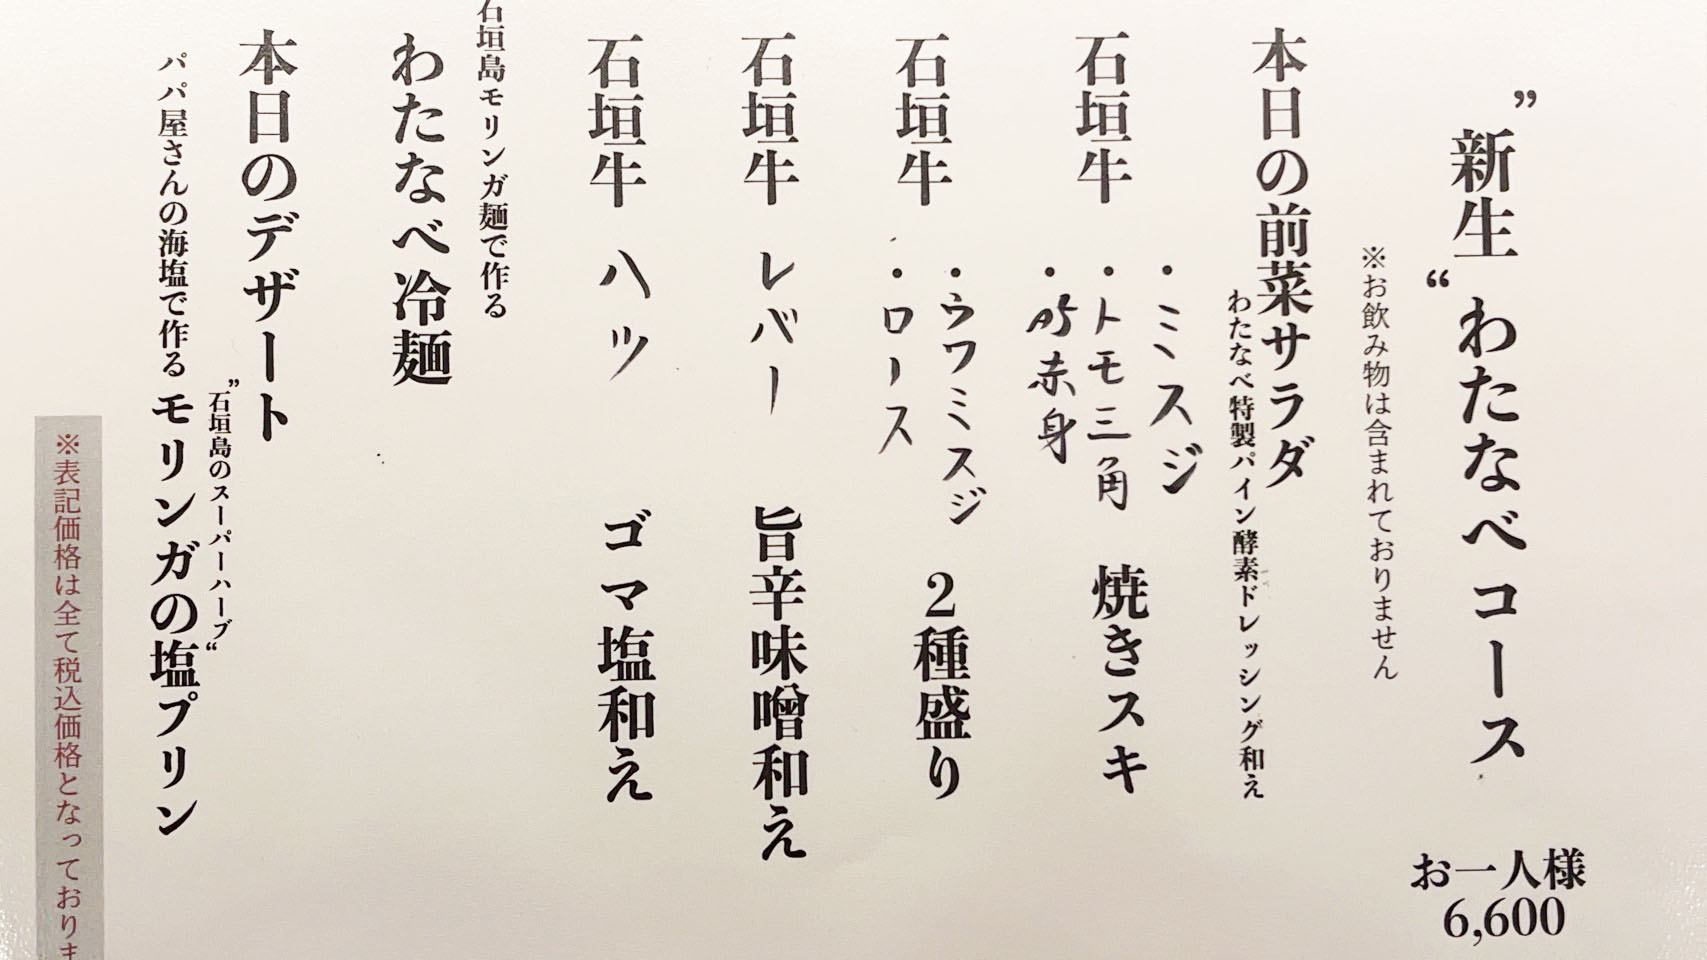 ”新生“わたなべコース
お一人様
6,600
※お飲み物は含まれておりません
本日の前菜サラダ
わたなべ特製パイン酵素ドレッシング和え
石垣牛
・ミスジ
・トモ三角
・赤身
焼きスキ
石垣牛
・ウワミスジ
・ロース
2種盛り
石垣牛 レバー 旨辛味噌和え
石垣牛 ハツ ゴマ塩和え
石垣島モリンガ麺で作る
わたなべ冷麺
本日のデザート
”石垣島のスーパーハーブ“
パパ屋さんの海塩で作るモリンガの塩プリン
※表記価格は全て税込価格となっておりま